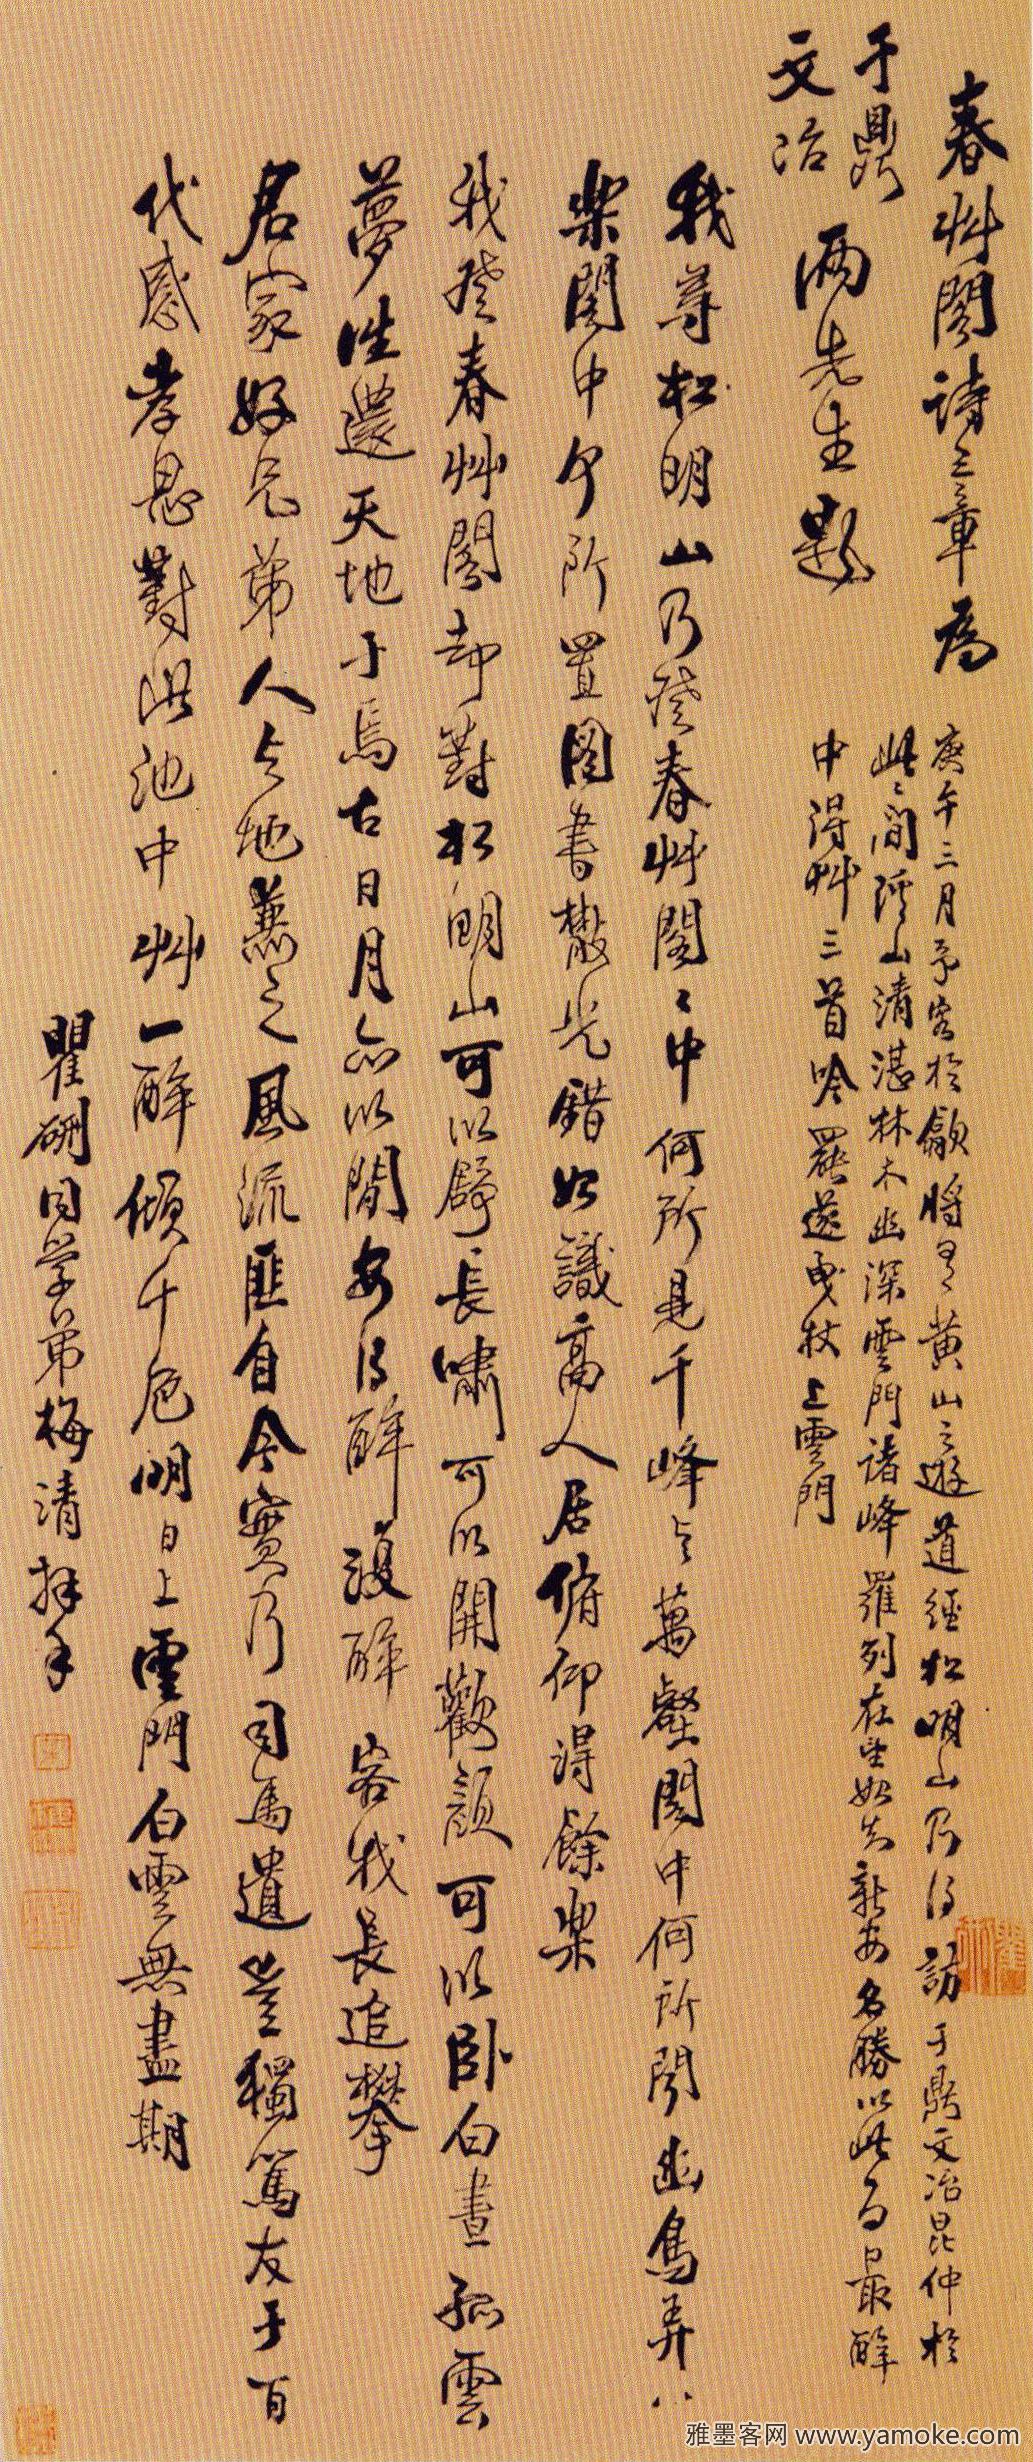 春艸閣詩三章為
于鼎
文冶 兩先生題
庚午三月予客於歙將有黃山之遊道經松明山乃得訪于鼎文冶昆仲於
此〻閒溪山清湛林木幽深雲門諸峰羅列在望始知新安名勝以此為最醉
中得艸三首吟罷遂曳杖上雲門
我尋松明山乃登春艸閣〻中何所見千峰与萬壑閣中何所聞幽鳥弄
樂閣中何所置圖書散光錯如識高人居俯仰得餘樂
我登春艸閣却對松明山可以舒長嘯可以開歡顏可以臥白晝孤雲
夢往還天地于焉古日月亦以閒安得醉復醉容我長追攀
君家好兄弟人与地兼之風流匪自今實乃司馬遺豈獨篤友于百
代感孝思對此池中艸一醉傾千卮明日上雲門白雲無盡期
瞿硎同學弟梅清拜手
雅墨客网 www.yamoke.com